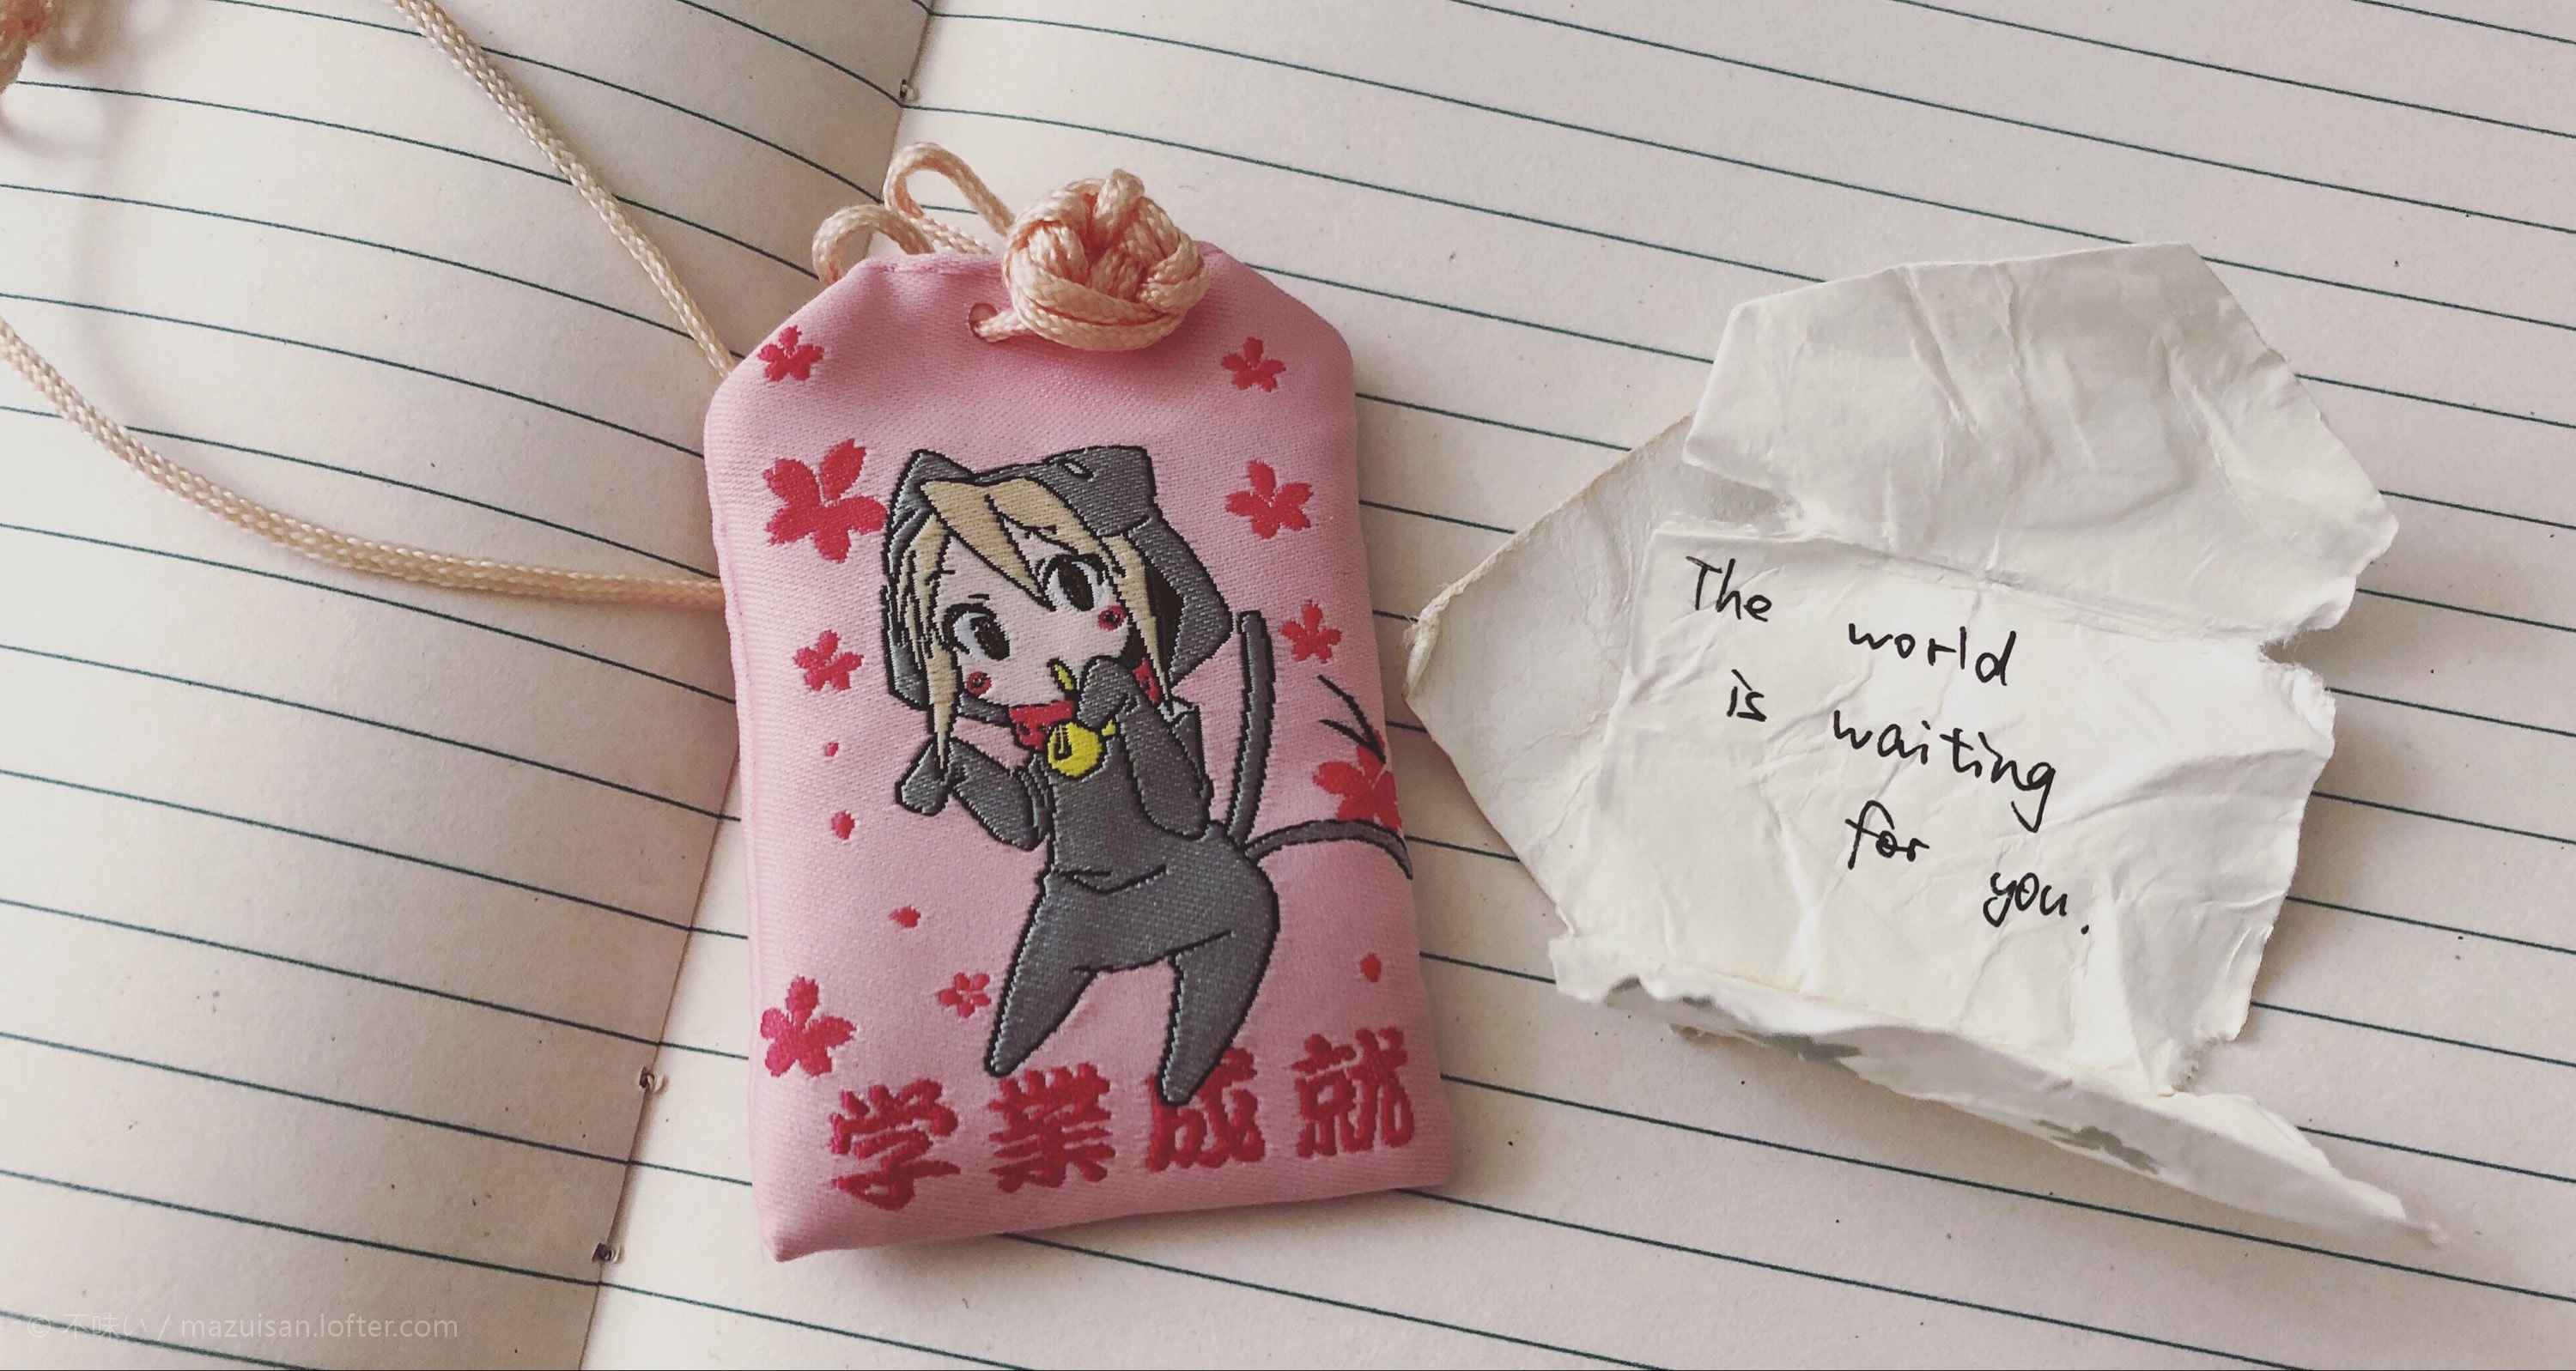 学業成就
The world
is waiting
for you.
© 不味い / mazuisan.lofter.com